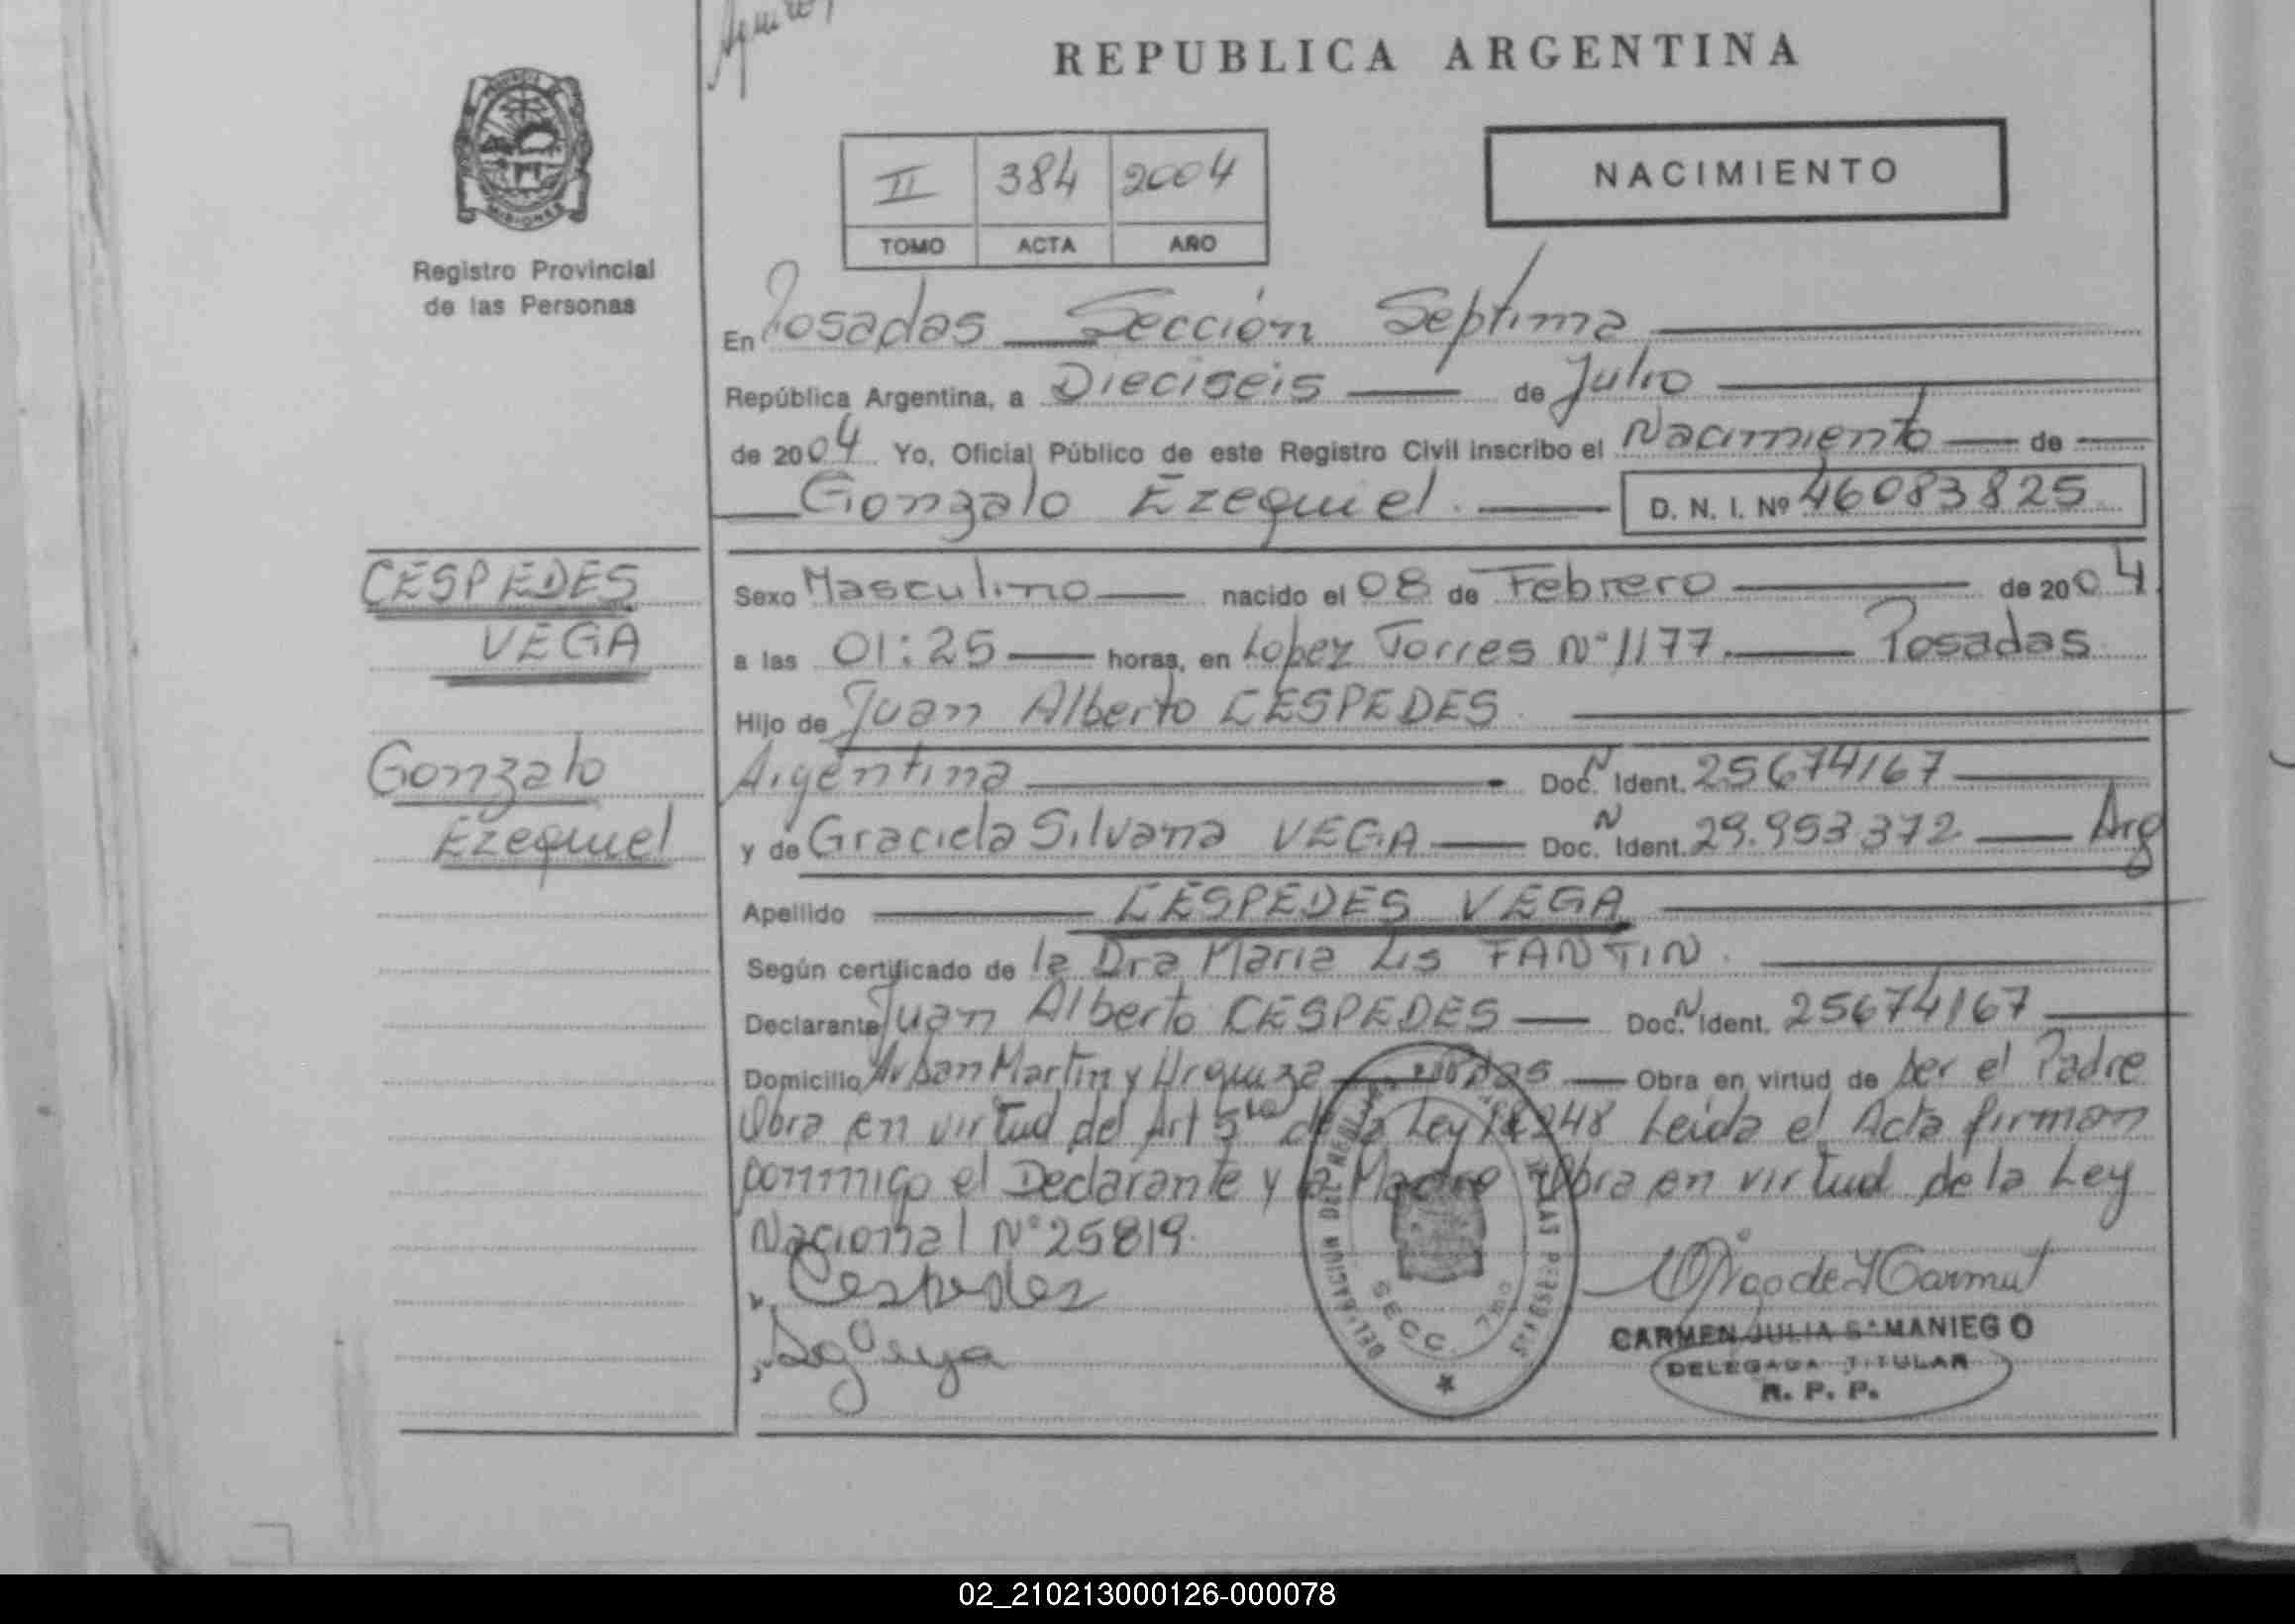 REPUBLICA ARGENTINA
MISIONES
Registro Provincial
de las Personas
II 384 2004
TOMO ACTA AÑO
NACIMIENTO
En Posadas Sección Septima
República Argentina, a Dieciseis de Julio
de 2004 Yo, Oficial Público de este Registro Civil inscribo el Nacimiento de
Gonzalo Ezequiel. D. N. I. Nº 46083825
CESPEDES
VEGA
Gonzalo
Ezequiel
Sexo Masculino nacido el 08 de Febrero de 2004
a las 01:25 horas, en Lopez Torres Nº 1177. Posadas
Hijo de Juan Alberto CESPEDES
Argentina Doc. N Ident. 25674167
y de Graciela Silvana VEGA Doc. N Ident. 29.953.372 Arg
Apellido CESPEDES VEGA
Según certificado de la Dra Maria Lis FANTIN.
Declarante Juan Alberto CESPEDES Doc. N Ident. 25674167
Domicilio Av San Martin y Urquiza Pdas Obra en virtud de ser el Padre
Obra en virtud del Art 5to de la Ley 18248 Leida el Acta firman
conmigo el Declarante y la Madre Obra en virtud de la Ley
Nacional Nº 25819.
Cespedes
SECC. 7ma
CARMEN JULIA SAMANIEGO
DELEGADA TITULAR
R. P. P.
02_210213000126-000078